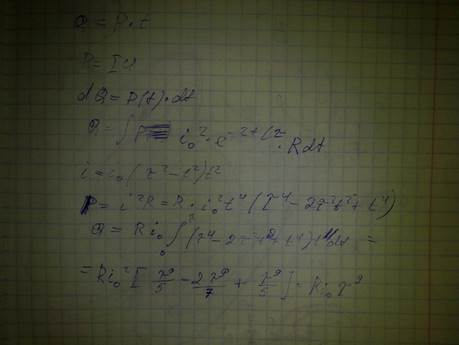 Q = P · t
P = IU
dQ = P(t) · dt
Q = ∫ i₀² · e^(-2t/τ) · R dt
i = i₀(τ² - t²)t²
P = i²R = R · i₀² t⁴ (τ⁴ - 2τ²t² + t⁴)
Q = R i₀ ∫₀^τ (τ⁴ - 2τ²t² + t⁴) t⁴ dt =
= R i₀² [ τ⁹/5 - 2τ⁹/7 + τ⁹/5 ] · R i₀ τ⁹